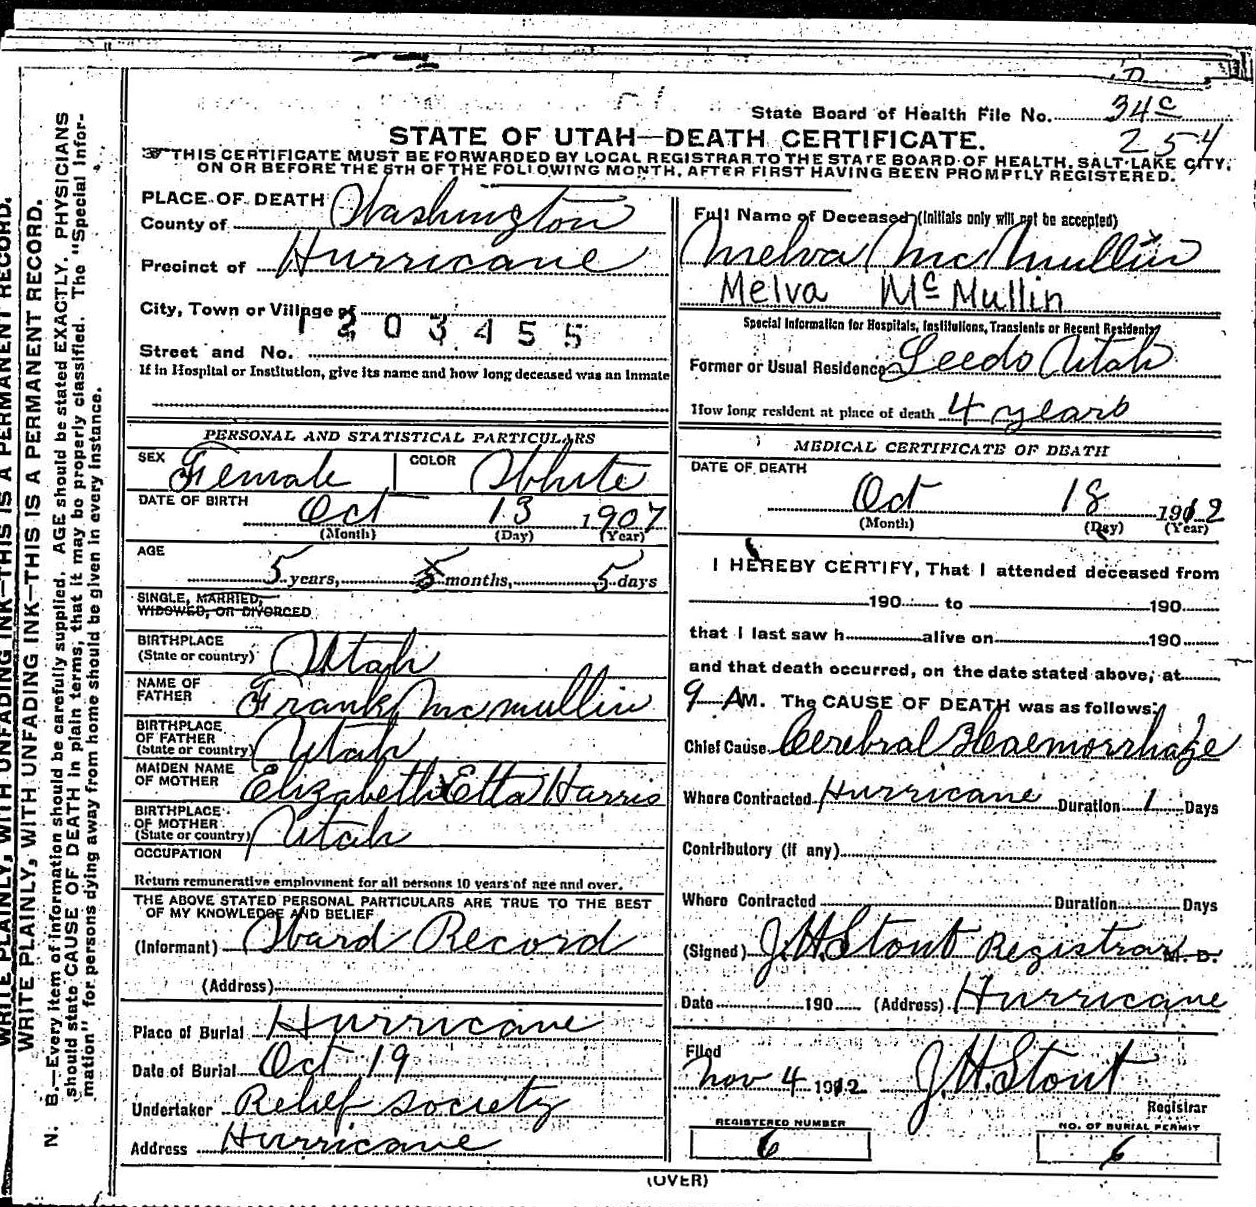 D
State Board of Health File No. 34c
254
STATE OF UTAH—DEATH CERTIFICATE.
THIS CERTIFICATE MUST BE FORWARDED BY LOCAL REGISTRAR TO THE STATE BOARD OF HEALTH, SALT LAKE CITY,
ON OR BEFORE THE 5TH OF THE FOLLOWING MONTH, AFTER FIRST HAVING BEEN PROMPTLY REGISTERED.
WRITE PLAINLY, WITH UNFADING INK—THIS IS A PERMANENT RECORD.
WRITE PLAINLY, WITH UNFADING INK—THIS IS A PERMANENT RECORD.
N. B.—Every item of information should be carefully supplied. AGE should be stated EXACTLY. PHYSICIANS
should state CAUSE OF DEATH in plain terms, that it may be properly classified. The "Special Infor-
mation" for persons dying away from home should be given in every instance.
PLACE OF DEATH
County of Washington
Precinct of Hurricane
City, Town or Village of
1203455
Street and No.
If in Hospital or Institution, give its name and how long deceased was an Inmate
PERSONAL AND STATISTICAL PARTICULARS
SEX Female COLOR White
DATE OF BIRTH Oct 13 1907
(Month) (Day) (Year)
AGE
5 years, months, 5 days
SINGLE, MARRIED,
WIDOWED, OR DIVORCED
BIRTHPLACE
(State or country) Utah
NAME OF
FATHER Frank McMullin
BIRTHPLACE
OF FATHER
(State or country) Utah
MAIDEN NAME
OF MOTHER Elizabeth Etta Harris
BIRTHPLACE
OF MOTHER
(State or country) Utah
OCCUPATION
Return remunerative employment for all persons 10 years of age and over.
THE ABOVE STATED PERSONAL PARTICULARS ARE TRUE TO THE BEST
OF MY KNOWLEDGE AND BELIEF
(Informant) Ward Record
(Address)
Place of Burial Hurricane
Date of Burial Oct 19
Undertaker Relief Society
Address Hurricane
Full Name of Deceased (Initials only will not be accepted)
Melva McMullin
Melva Mc Mullin
Special Information for Hospitals, Institutions, Transients or Recent Residents
Former or Usual Residence Leeds Utah
How long resident at place of death 4 years
MEDICAL CERTIFICATE OF DEATH
DATE OF DEATH
Oct 18 1912
(Month) (Day) (Year)
I HEREBY CERTIFY, That I attended deceased from
190 to 190
that I last saw h alive on 190
and that death occurred, on the date stated above, at
9 A M. The CAUSE OF DEATH was as follows:
Chief Cause Cerebral Haemorrhage
Where Contracted Hurricane Duration 1 Days
Contributory (if any)
Where Contracted Duration Days
(Signed) J.H. Stout Registrar M. D.
Date 190 (Address) Hurricane
Filed
Nov 4 1912 J.H. Stout
Registrar
REGISTERED NUMBER
6
NO. OF BURIAL PERMIT
6
(OVER)